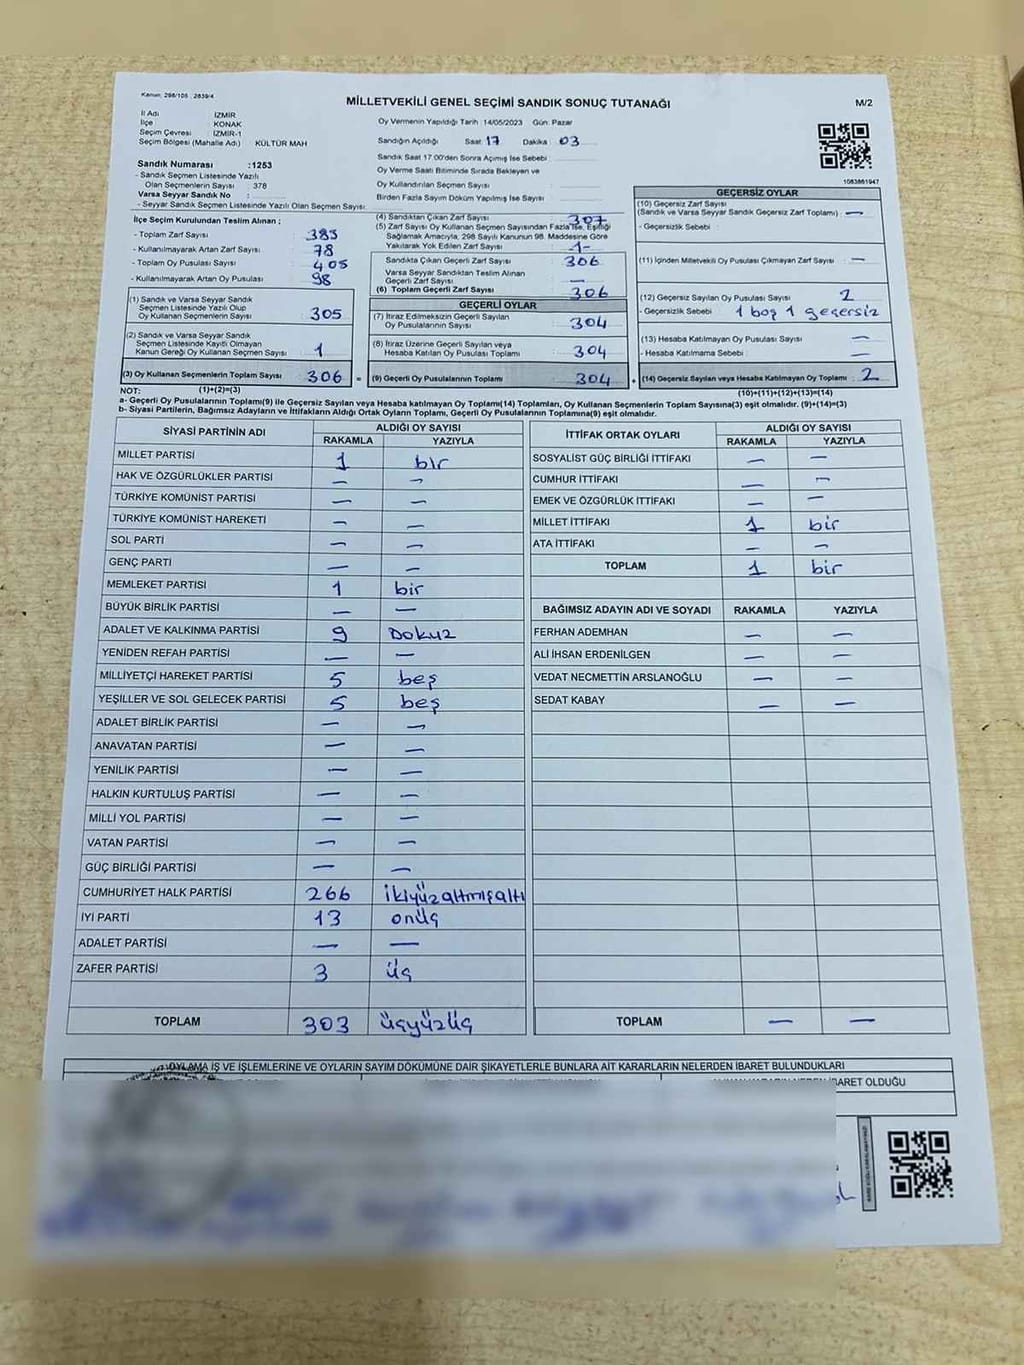 Kanun: 298/105 , 2839/4
MİLLETVEKİLİ GENEL SEÇİMİ SANDIK SONUÇ TUTANAĞI
M/2
İl Adı İZMİR
İlçe KONAK
Seçim Çevresi : İZMİR-1
Seçim Bölgesi (Mahalle Adı) KÜLTÜR MAH
Oy Vermenin Yapıldığı Tarih :14/05/2023 Gün: Pazar
Sandığın Açıldığı Saat 17 Dakika 03
Sandık Saat 17.00'den Sonra Açımış İse Sebebi :
Oy Verme Saati Bitiminde Sırada Bekleyen ve
Oy Kullandırılan Seçmen Sayısı :
Birden Fazla Sayım Döküm Yapılmış İse Sayısı :
1083861947
Sandık Numarası :1253
- Sandık Seçmen Listesinde Yazılı
Olan Seçmenlerin Sayısı : 378
Varsa Seyyar Sandık No :
- Seyyar Sandık Seçmen Listesinde Yazılı Olan Seçmen Sayısı:
İlçe Seçim Kurulundan Teslim Alınan ;
- Toplam Zarf Sayısı : 383
- Kullanılmayarak Artan Zarf Sayısı : 78
- Toplam Oy Pusulası Sayısı : 405
- Kullanılmayarak Artan Oy Pusulası : 98
(1) Sandık ve Varsa Seyyar Sandık
Seçmen Listesinde Yazılı Olup
Oy Kullanan Seçmenlerin Sayısı : 305
(2) Sandık ve Varsa Seyyar Sandık
Seçmen Listesinde Kayıtlı Olmayan
Kanun Gereği Oy Kullanan Seçmen Sayısı : 1
(3) Oy Kullanan Seçmenlerin Toplam Sayısı : 306 =
(4) Sandıktan Çıkan Zarf Sayısı : 307
(5) Zarf Sayısı Oy Kullanan Seçmen Sayısından Fazla İse, Eşitliği
Sağlamak Amacıyla, 298 Sayılı Kanunun 98. Maddesine Göre
Yakılarak Yok Edilen Zarf Sayısı : -1-
Sandıkta Çıkan Geçerli Zarf Sayısı : 306
Varsa Seyyar Sandıktan Teslim Alınan
Geçerli Zarf Sayısı : —
(6) Toplam Geçerli Zarf Sayısı : 306
GEÇERLİ OYLAR
(7) İtiraz Edilmeksizin Geçerli Sayılan
Oy Pusulalarının Sayısı : 304
(8) İtiraz Üzerine Geçerli Sayılan veya
Hesaba Katılan Oy Pusulası Toplamı : 304
(9) Geçerli Oy Pusulalarının Toplamı : 304 +
GEÇERSİZ OYLAR
(10) Geçersiz Zarf Sayısı
(Sandık ve Varsa Seyyar Sandık Geçersiz Zarf Toplamı) : —
- Geçersizlik Sebebi :
(11) İçinden Milletvekili Oy Pusulası Çıkmayan Zarf Sayısı : —
(12) Geçersiz Sayılan Oy Pusulası Sayısı : 2
- Geçersizlik Sebebi : 1 boş 1 geçersiz
(13) Hesaba Katılmayan Oy Pusulası Sayısı : —
- Hesaba Katılmama Sebebi : —
(14) Geçersiz Sayılan veya Hesaba Katılmayan Oy Toplamı : 2
NOT: (1)+(2)=(3) (10)+(11)+(12)+(13)=(14)
a- Geçerli Oy Pusulasının Toplamı(9) ile Geçersiz Sayılan veya Hesaba Katılmayan Oy Toplamı(14) Toplamları, Oy Kullanan Seçmenlerin Toplam Sayısına(3) eşit olmalıdır. (9)+(14)=(3)
b- Siyasi Partilerin, Bağımsız Adayların ve İttifakların Aldığı Ortak Oyların Toplamı, Geçerli Oy Pusulalarının Toplamına(9) eşit olmalıdır.
SİYASİ PARTİNİN ADI ALDIĞI OY SAYISI
RAKAMLA YAZIYLA
MİLLET PARTİSİ 1 bir
HAK VE ÖZGÜRLÜKLER PARTİSİ — —
TÜRKİYE KOMÜNİST PARTİSİ — —
TÜRKİYE KOMÜNİST HAREKETİ — —
SOL PARTİ — —
GENÇ PARTİ — —
MEMLEKET PARTİSİ 1 bir
BÜYÜK BİRLİK PARTİSİ — —
ADALET VE KALKINMA PARTİSİ 9 Dokuz
YENİDEN REFAH PARTİSİ — —
MİLLİYETÇİ HAREKET PARTİSİ 5 beş
YEŞİLLER VE SOL GELECEK PARTİSİ 5 beş
ADALET BİRLİK PARTİSİ — —
ANAVATAN PARTİSİ — —
YENİLİK PARTİSİ — —
HALKIN KURTULUŞ PARTİSİ — —
MİLLİ YOL PARTİSİ — —
VATAN PARTİSİ — —
GÜÇ BİRLİĞİ PARTİSİ — —
CUMHURİYET HALK PARTİSİ 266 ikiyüzaltmışaltı
İYİ PARTİ 13 onüç
ADALET PARTİSİ — —
ZAFER PARTİSİ 3 üç
TOPLAM 303 üçyüzüç
İTTİFAK ORTAK OYLARI ALDIĞI OY SAYISI
RAKAMLA YAZIYLA
SOSYALİST GÜÇ BİRLİĞİ İTTİFAKI — —
CUMHUR İTTİFAKI — —
EMEK VE ÖZGÜRLÜK İTTİFAKI — —
MİLLET İTTİFAKI 1 bir
ATA İTTİFAKI — —
TOPLAM 1 bir
BAĞIMSIZ ADAYIN ADI VE SOYADI RAKAMLA YAZIYLA
FERHAN ADEMHAN — —
ALİ İHSAN ERDENİLGEN — —
VEDAT NECMETTİN ARSLANOĞLU — —
SEDAT KABAY — —
TOPLAM — —
OYLAMA İŞ VE İŞLEMLERİNE VE OYLARIN SAYIM DÖKÜMÜNE DAİR ŞİKAYETLERLE BUNLARA AİT KARARLARIN NELERDEN İBARET BULUNDUKLARI
İBARET OLDUĞU